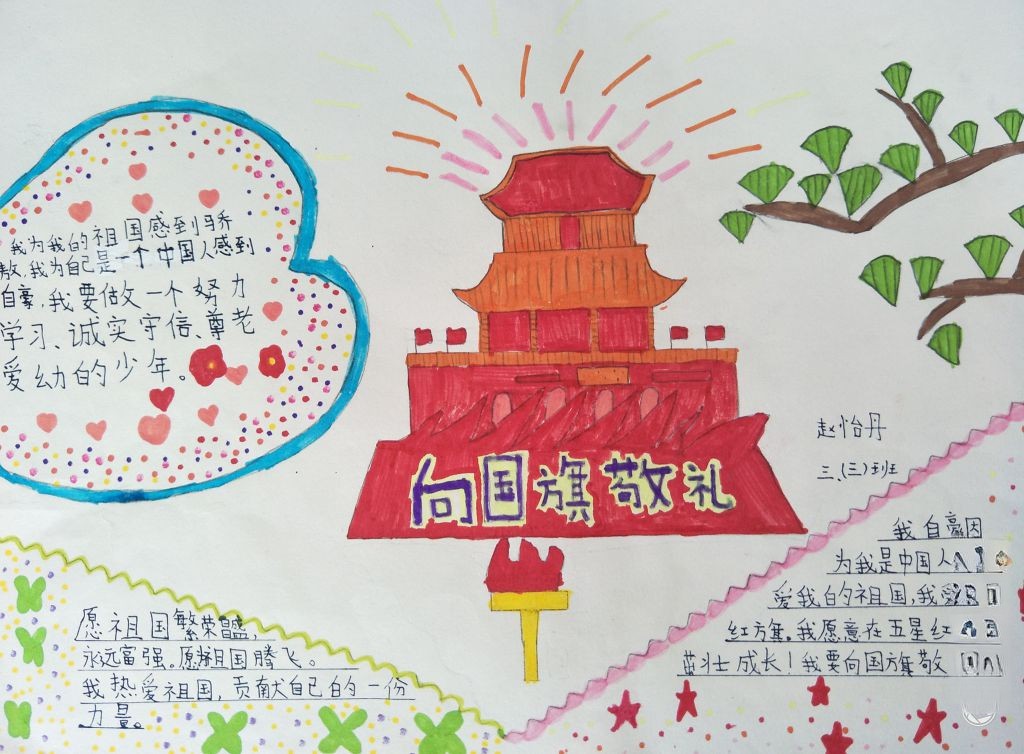 我为我的祖国感到骄
敖,我为自己是一个中国人感到
自豪,我要做一个努力
学习、诚实守信、尊老
爱幼的少年。
向国旗敬礼
赵怡丹
三、(三)班
我自豪因
为我是中国人
爱我的祖国,我
红方旗。我愿意在五星红
茁壮成长!我要向国旗敬
愿祖国繁荣昌盛,
永远富强。愿祖国腾飞。
我热爱祖国,贡献自己的一份
力量。